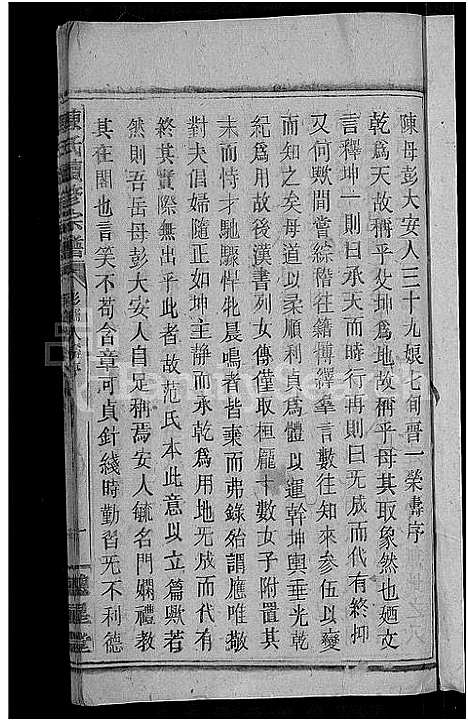 陳母彭大安人三十九娘七旬晋一榮壽序
乾爲天故稱乎父坤爲地故稱乎母其取象然也廼文
言釋坤一則曰承天而時行再則曰无成而代有終抑
又何歟間嘗綜稽往籍博繹羣言數往知來參伍以變
而知之矣母道以柔順利貞爲體以運幹坤輿垂光乾
紀爲用故後漢書列女傳僅取桓龐十數女子附置其
末而恃才馳驟悍牝晨鳴者皆棄而弗錄殆謂應唯敬
對夫倡婦隨正如坤主靜而承乾爲用地无成代有
終其實際無出乎此者故范氏本此意以立篇歟若
然則吾岳母彭大安人自足稱焉安人毓名門嫻禮教
其在閨也言笑不苟含章可貞針綫時勤習无不利德
陳氏續修宗譜